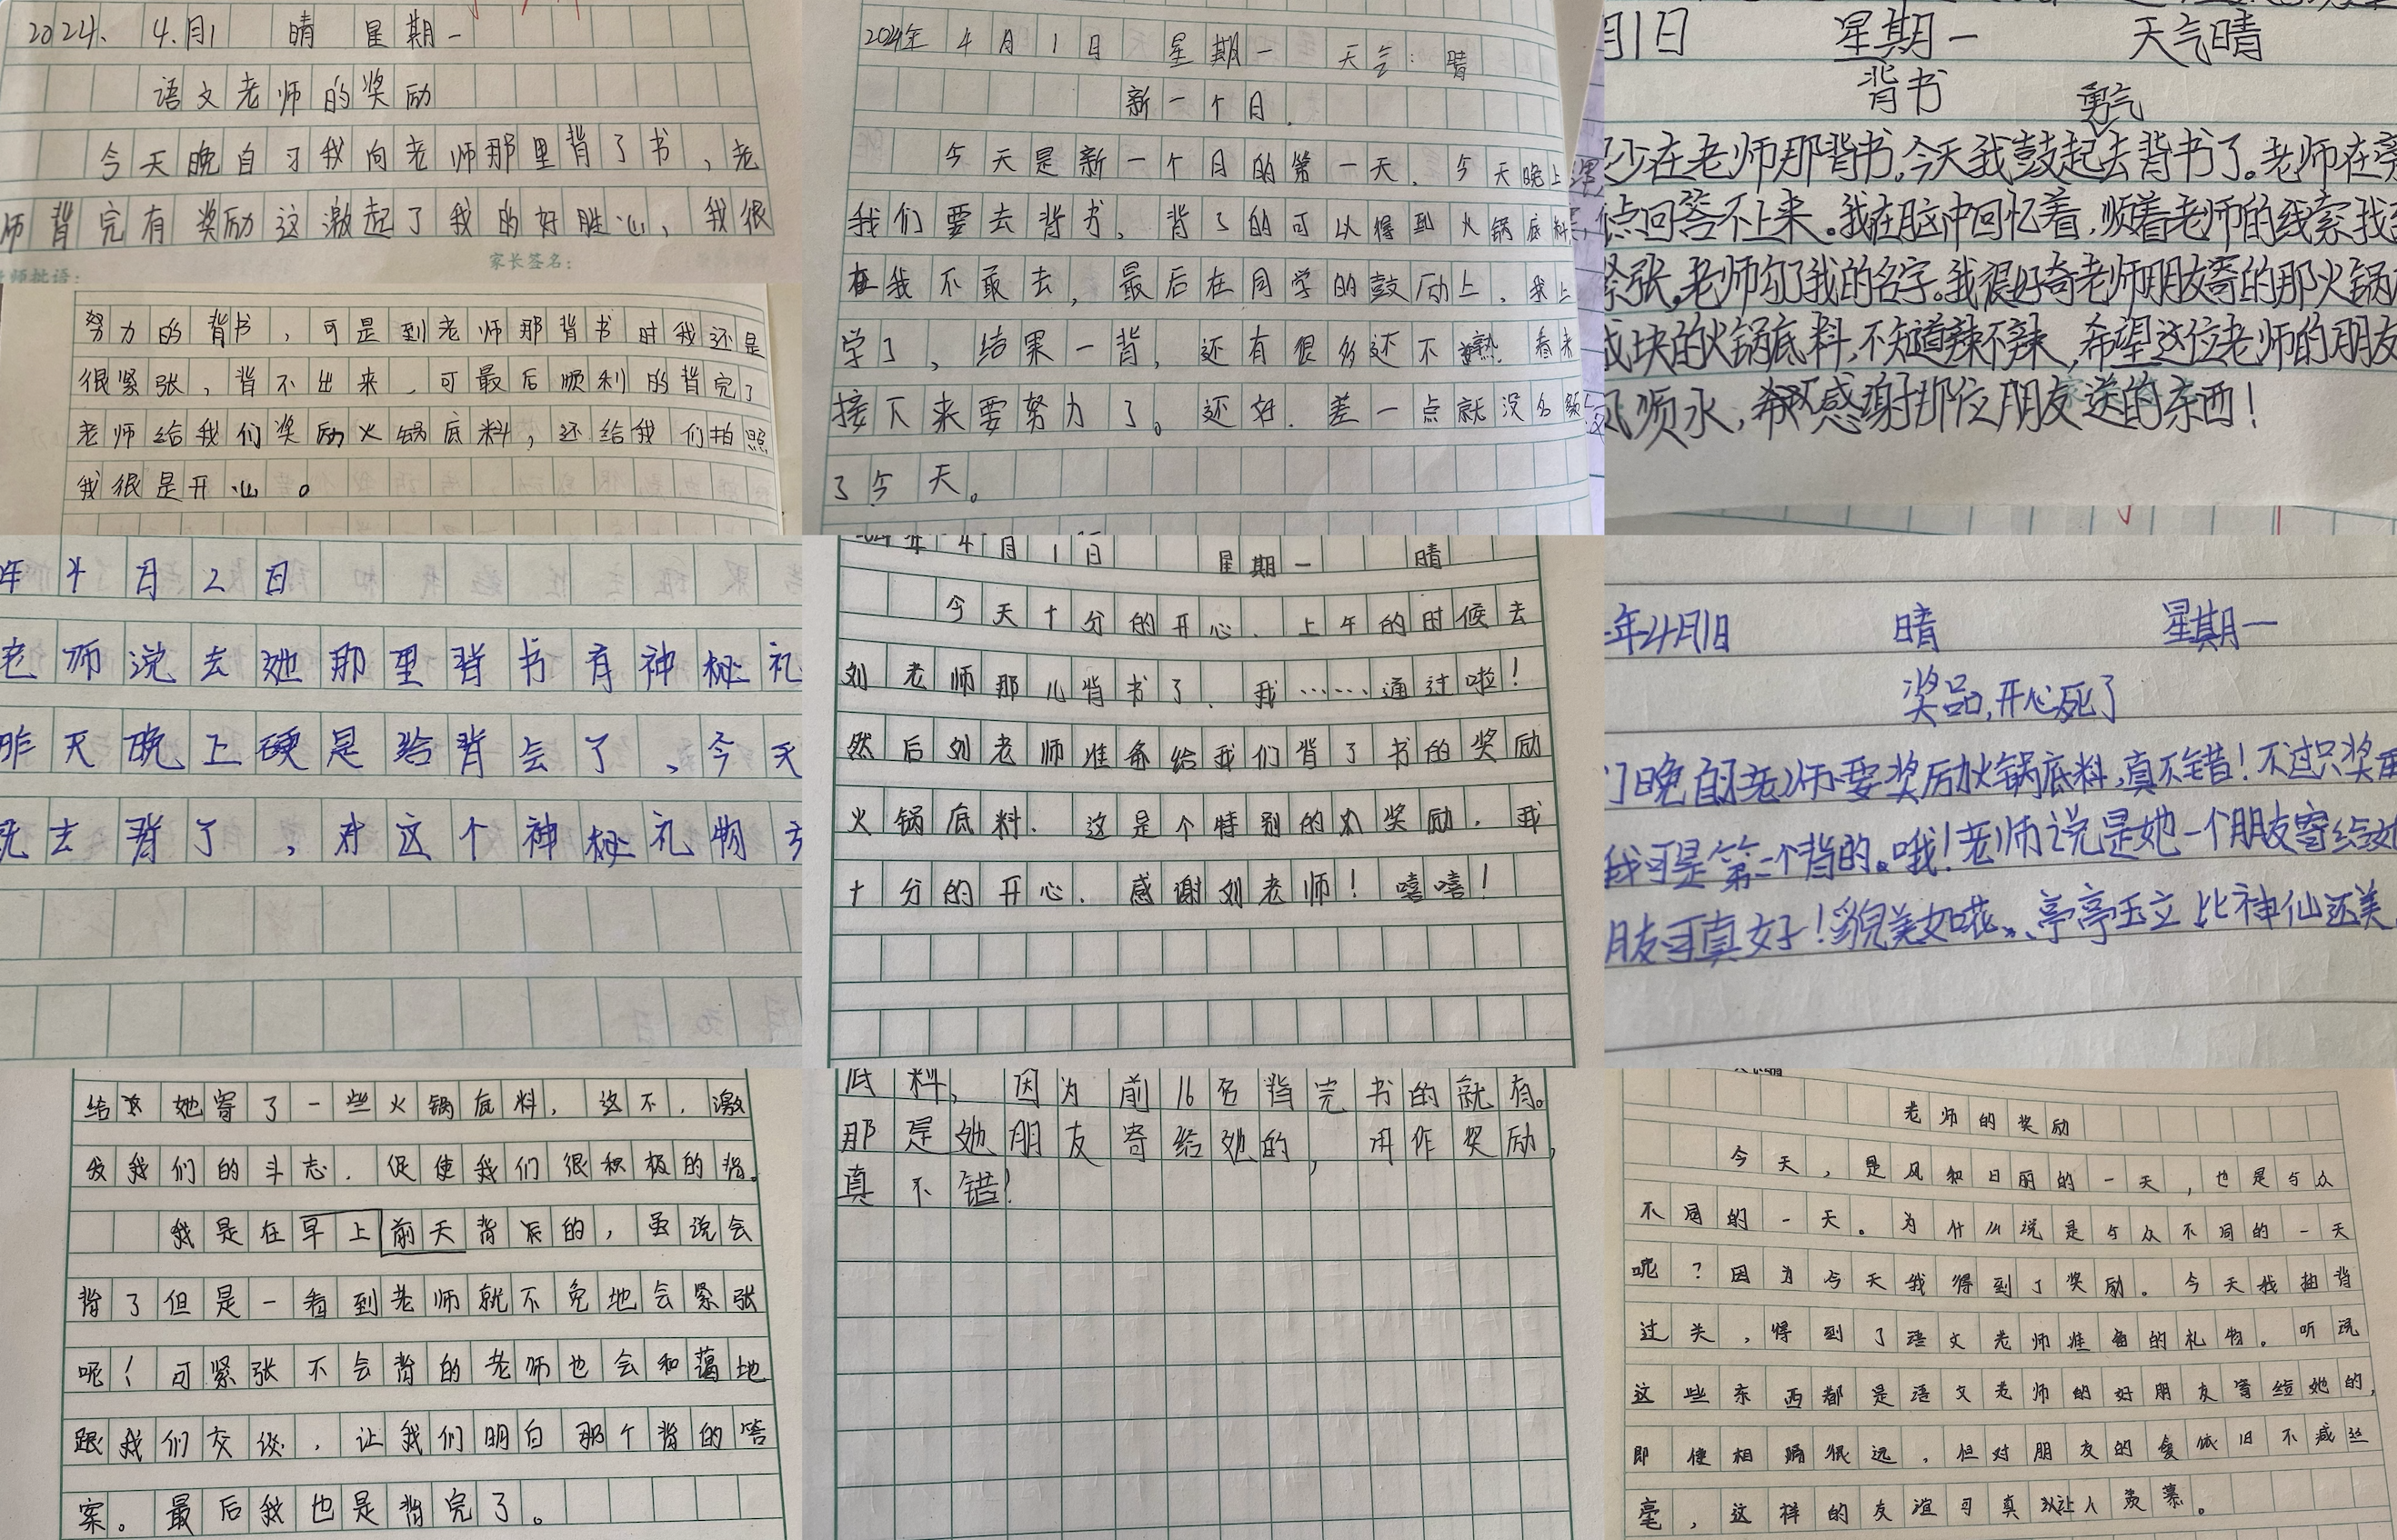 2024、4.月1 晴 星期一
语文老师的奖励
今天晚自习我向老师那里背了书,老
师背完有奖励这激起了我的好胜心,我很
家长签名:
师批语:
努力的背书,可是到老师那背书时我还是
很紧张,背不出来,可最后顺利的背完了
老师给我们奖励火锅底料,还给我们拍照
我很是开心。
2024年4月1日 星期一 天气:晴
新一个月.
今天是新一个月的第一天.今天晚上
我们要去背书,背了的可以得到火锅底料,
我不敢去,最后在同学的鼓励上,我上
学了,结果一背,还有很多还不熟.看来
接下来要努力了。还好.差一点就没
了今天。
月1日 星期一 天气晴
背书
勇气
少在老师那背书,今天我鼓起去背书了。老师在旁
点回答不上来。我在脑中回忆着,顺着老师的线索找
紧张,老师勾了我的名字。我很好奇老师朋友寄的那火锅
成块的火锅底料,不知道辣不辣,希望这位老师的朋友
风顺水,感谢那位朋友送的东西!
年4月2日
老师说去她那里背书有神秘礼
昨天晚上硬是给背会了,今天
就去背了,对这个神秘礼物
2024年4月1日 星期一 晴
今天十分的开心.上午的时候去
刘老师那儿背书了.我……通过啦!
然后刘老师准备给我们背了书的奖励
火锅底料.这是个特别的奖励.我
十分的开心.感谢刘老师!嘻嘻!
年4月1日 晴 星期一
奖品,开心死了
晚自习老师要奖励火锅底料,真不错!不过只奖
我可是第一个背的。哦!老师说是她一个朋友寄给她
朋友可真好!貌美如花、亭亭玉立比神仙还美
给她寄了一些火锅底料,这不,激
发我们的斗志.促使我们很积极的背。
我是在早上前天背后的,虽说会
背了但是一看到老师就不免地会紧张
呢!可紧张不会背的老师也会和蔼地
跟我们交谈,让我们明白那个背的答
案。最后我也是背完了。
底料,因为前16名背完书的就有。
那是她朋友寄给她的,用作奖励,
真不错!
老师的奖励
今天,是风和日丽的一天,也是与众
不同的一天。为什么说是与众不同的一天
呢?因为今天我得到了奖励。今天我抽背
过关,得到了语文老师准备的礼物。听说
这些东西都是语文老师的好朋友寄给她的,
即使相隔很远,但对朋友的爱依旧不减丝
毫,这样的友谊可真让人羡慕。